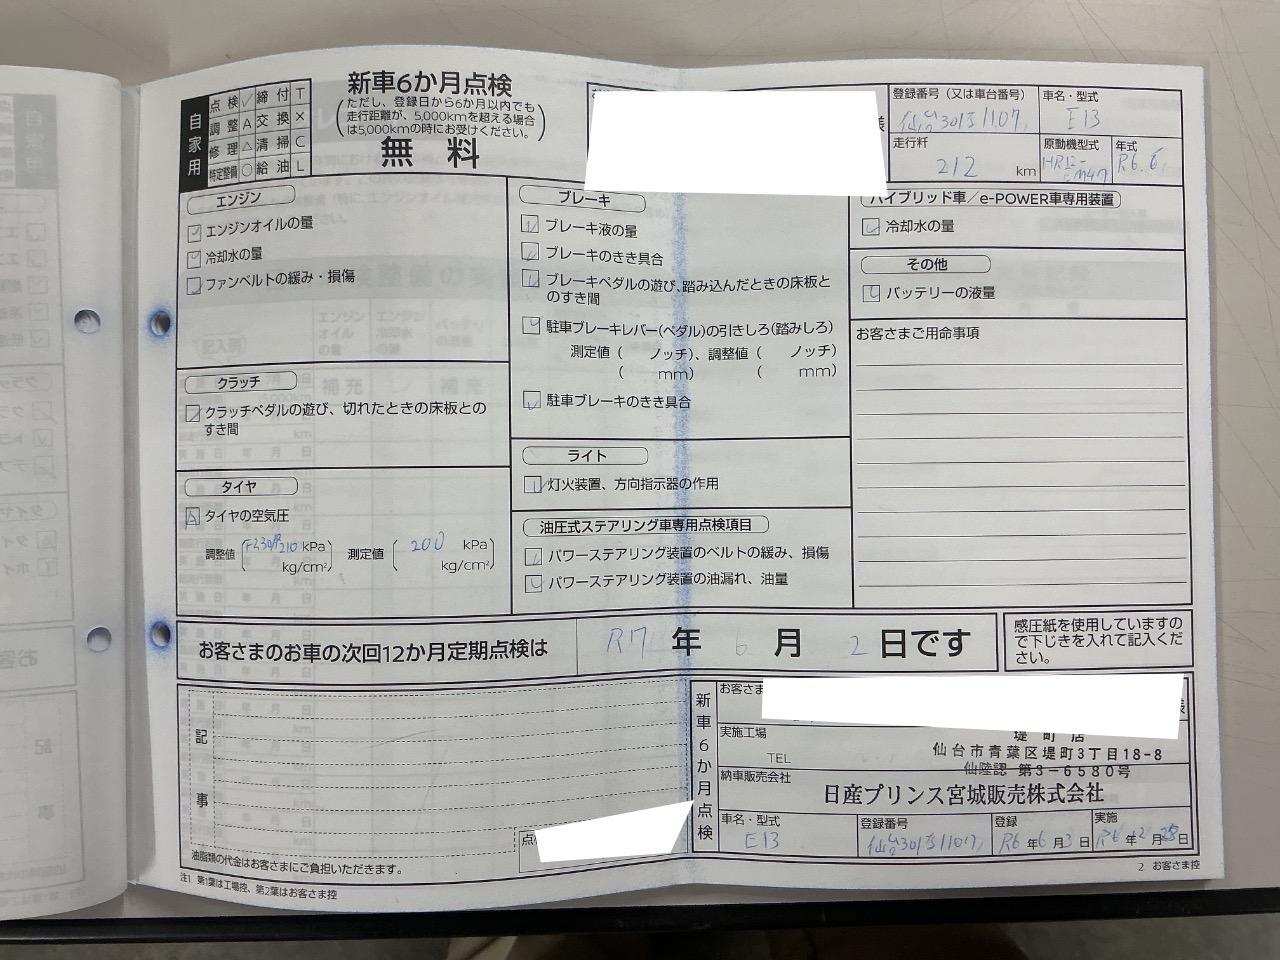 自家用
点検 ✓ 締付 T
調整 A 交換 ×
修理 △ 清掃 C
特定整備 ○ 給油 L
新車6か月点検
(ただし、登録日から6か月以内でも
走行距離が、5,000kmを超える場合
は5,000kmの時にお受けください。)
無料
様
登録番号(又は車台番号)
車名・型式
E13
走行粁
212 km
原動機型式
HR12-EM47
年式
R6.6
エンジン
エンジンオイルの量
冷却水の量
ファンベルトの緩み・損傷
クラッチ
クラッチペダルの遊び、切れたときの床板との
すき間
タイヤ
タイヤの空気圧
調整値 (F230/R210 kPa
kg/cm²) 測定値 (200 kPa
kg/cm²)
ブレーキ
ブレーキ液の量
ブレーキのきき具合
ブレーキペダルの遊び、踏み込んだときの床板と
のすき間
駐車ブレーキレバー(ペダル)の引きしろ(踏みしろ)
測定値( ノッチ)、調整値( ノッチ)
( mm) ( mm)
駐車ブレーキのきき具合
ライト
灯火装置、方向指示器の作用
油圧式ステアリング車専用点検項目
パワーステアリング装置のベルトの緩み、損傷
パワーステアリング装置の油漏れ、油量
ハイブリッド車/e-POWER車専用装置
冷却水の量
その他
バッテリーの液量
お客さまご用命事項
お客さまのお車の次回12か月定期点検は R7年6月2日です
感圧紙を使用していますの
で下じきを入れて記入くだ
さい。
記事
油脂類の代金はお客さまにご負担いただきます。
注1 第1葉は工場控、第2葉はお客さま控
新車6か月点検
お客さま
様
実施工場
TEL
堤町店
仙台市青葉区堤町3丁目18-8
仙陸認 第3-6580号
納車販売会社
日産プリンス宮城販売株式会社
車名・型式
E13
登録番号
登録
R6年6月3日
実施
2 お客さま控